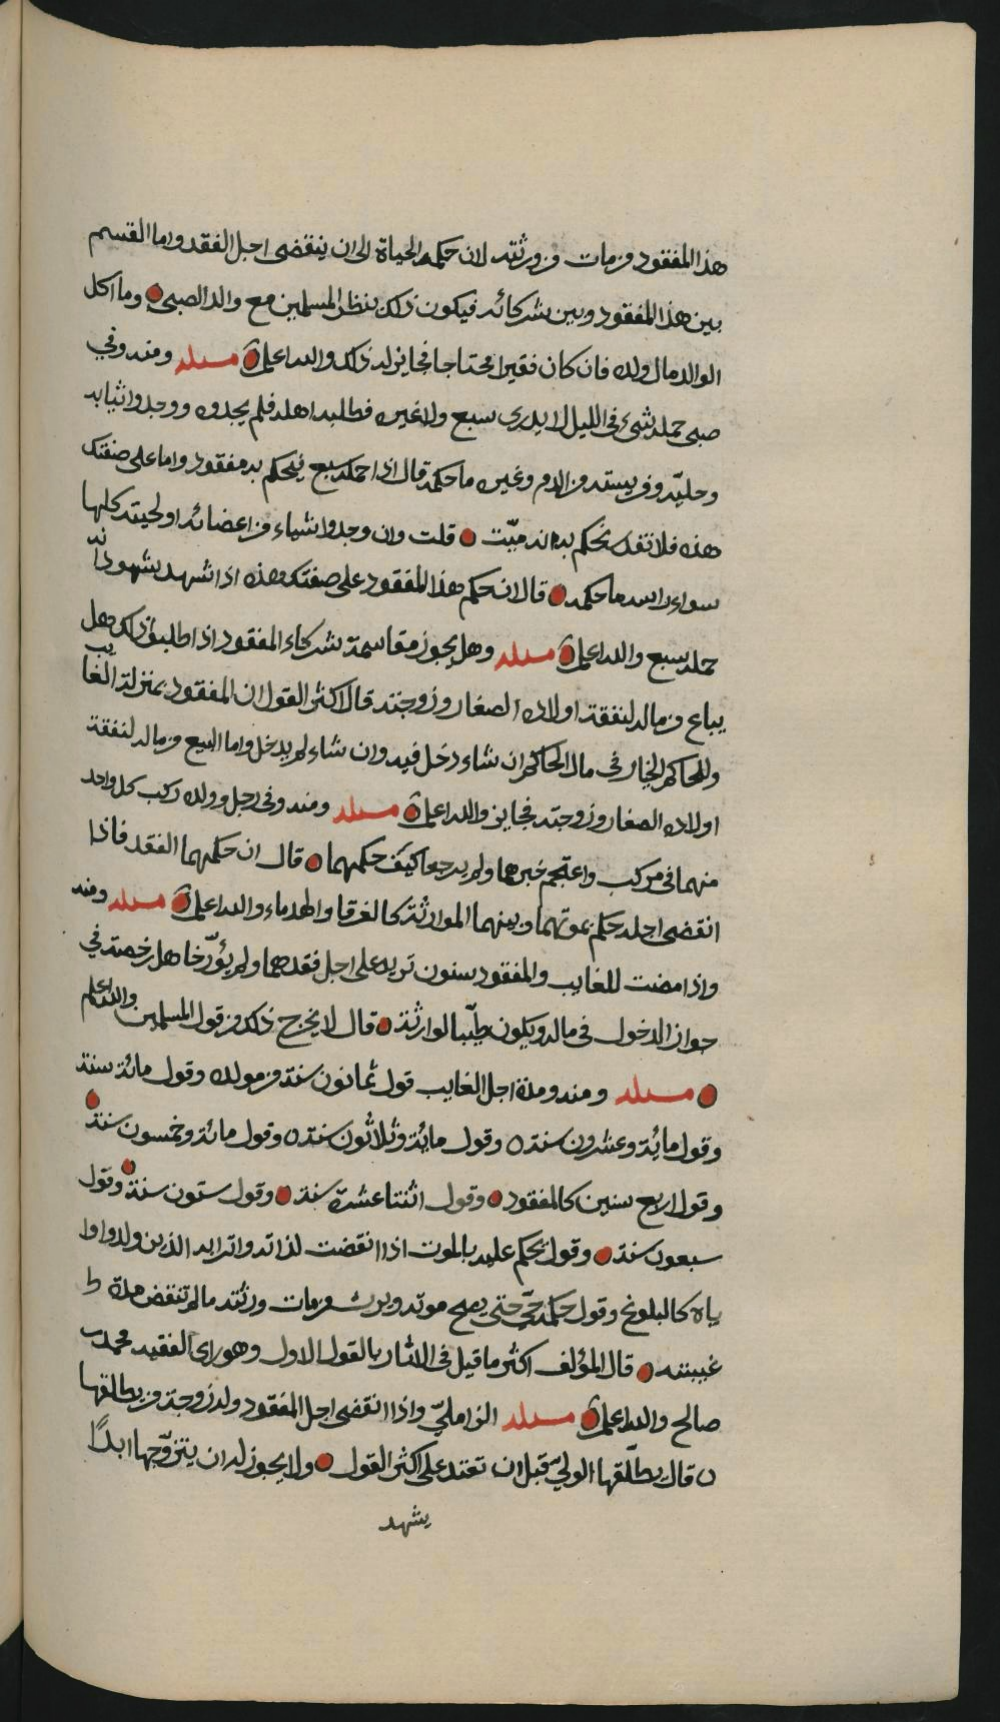 هذا المفقود من مات من ورثته لان حكمه الحياة الى ان ينقضى اجل الفقد واما القسم
بين هذا المفقود وبين شركائه فيكون ذلك بنظر المسلمين مع والد الصبي وما اكل
الوالد مال ولده فان كان فقيرا محتاجا فجايز له ذلك والله اعلم مسئله ومنه وفي
صبي حمله شيء في الليل لا يدرى سبع ولا غيره فطلبه اهله فلم يجدوه ووجدوا ثيابه
وحليّه وفريسته من الدم وغيره ما حكمه قال اذا حمله سبع فيحكم به مفقود واما على صفتك
هذه فلا نقدر نحكم به انه ميّت قلت وان وجدوا شياء من اعضائه او لحيته كلها
سواء راسه ما حكمه قال ان حكم هذا المفقود على صفتك هذه اذا شهد شهود انه
حمله سبع والله اعلم مسئله وهل يجوز مقاسمة شركاء المفقود اذا طلبوا ذلك وهل
يباع من ماله لنفقة اولاده الصغار وزوجته قال اكثر القول ان المفقود بمنزلة الغايب
وللحاكم الخيار في مال الحاكم ان شاء دخل فيه وان شاء لم يدخل واما البيع من ماله لنفقة
اولاده الصغار وزوجته فجايز والله اعلم مسئله ومنه وفى رجل وولده ركب كل واحد
منهما في مركب واعتجم خبرهما ولم يرجعا كيف حكمهما قال ان حكمهما الفقد فاذا
انقضى اجله حكم بموتهما وبينهما الموارثة كالغرقا والهدماء والله اعلم مسئله ومنه
واذا مضت للغايب والمفقود سنون تزيد على اجل فقدهما ولم يؤرّخا هل رخصة في
جواز الدخول في ماله ويكون طيّبا لوارثه قال لا يخرج ذلك من قول المسلمين والله اعلم
مسئله ومنه ومدة اجل الغايب قول ثمانون سنة من مولده وقول مائة سنة
وقول مائة وعشرون سنة وقول مائة وثلاثون سنة وقول مائة وخمسون سنة
وقول اربع سنين كالمفقود وقول اثنتا عشرة سنة وقول ستون سنة وقول
سبعون سنة وقول يحكم عليه بالموت اذا انقضت لذاته واترابه الذين ولدوا وا
ياه كالبلوغ وقول حكمه حيّ حتى يصح موته ويورث من مات ورثته مالم تنقض مدة
غيبته قال المؤلف اكثر ما قيل في الاثار بالقول الاول وهو راى الفقيه محمد بن
صالح والله اعلم مسئله الزاملىّ واذا انقضى اجل المفقود وله زوجة من يطلقها
قال يطلّقها الوليّ قبل ان تعتد على اكثر القول ولا يجوز له ان يتزوّجها ابدًا
يشهد